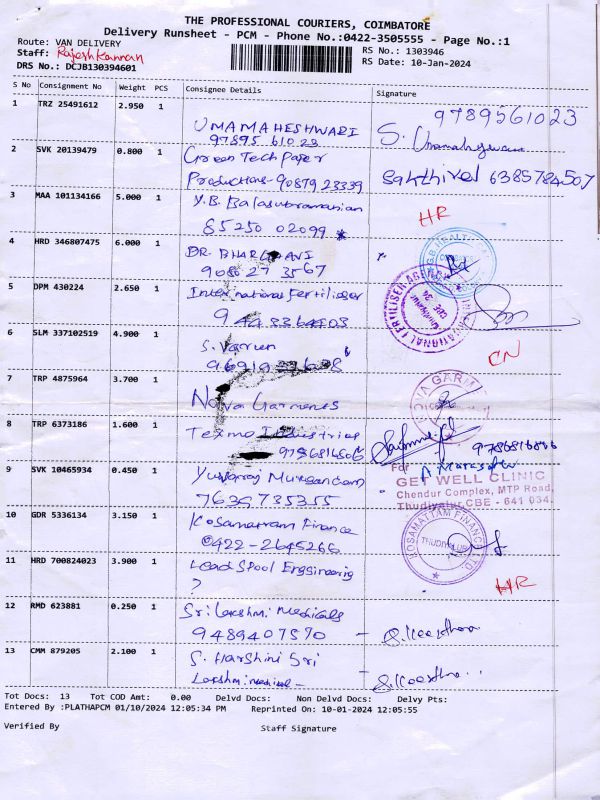 THE PROFESSIONAL COURIERS, COIMBATORE
Delivery Runsheet - PCM - Phone No.:0422-3505555 - Page No.:1
Route: VAN DELIVERY
RS No.: 1303946
Staff: Rajesh Kannan
RS Date: 10-Jan-2024
DRS No.: DCJB130394601
S No Consignment No Weight PCS Consignee Details Signature
1 TRZ 25491612 2.950 1
UMAMAHESHWARI
97895 61023
9789561023
S. Umamaheswari
2 SVK 20139479 0.800 1 Green Tech Paper
Productions-9087923339
Sakthivel 6385784507
3 MAA 101134166 5.000 1 Y.B. Balasubramanian
85250 02099
HR
4 HRD 346807475 6.000 1 DR. BHARGHAVI
90802 73567
5 DPM 430224 2.650 1 International Fertiliser
INTERNATIONAL FERTILISER AGENCY
6 SLM 337102519 4.900 1 S. Varun
CN
7 TRP 4875964 3.700 1 Nova Garments
NOVA GARMENTS
8 TRP 6373186 1.600 1 Texmo Industries
9786816806
9 SVK 10465934 0.450 1 Yuvaraj Murugandam
7639735355
For
GET WELL CLINIC
Chendur Complex, MTP Road,
Thudiyalur, CBE - 641 034.
10 GDR 5336134 3.150 1 Kosamattam Finance
0422-2645266
KOSAMATTAM FINANCE LTD.
THUDIYALUR
11 HRD 700824023 3.900 1 Lead Spool Engineering
?
HR
12 RMD 623881 0.250 1 Sri Lakshmi Medicals
9489407570
13 CMM 879205 2.100 1 S. Harshini Sri
Lakshmi medical
Tot Docs: 13 Tot COD Amt: 0.00 Delvd Docs: Non Delvd Docs: Delvy Pts:
Entered By :PLATHAPCM 01/10/2024 12:05:34 PM Reprinted On: 10-01-2024 12:05:55
Verified By Staff Signature